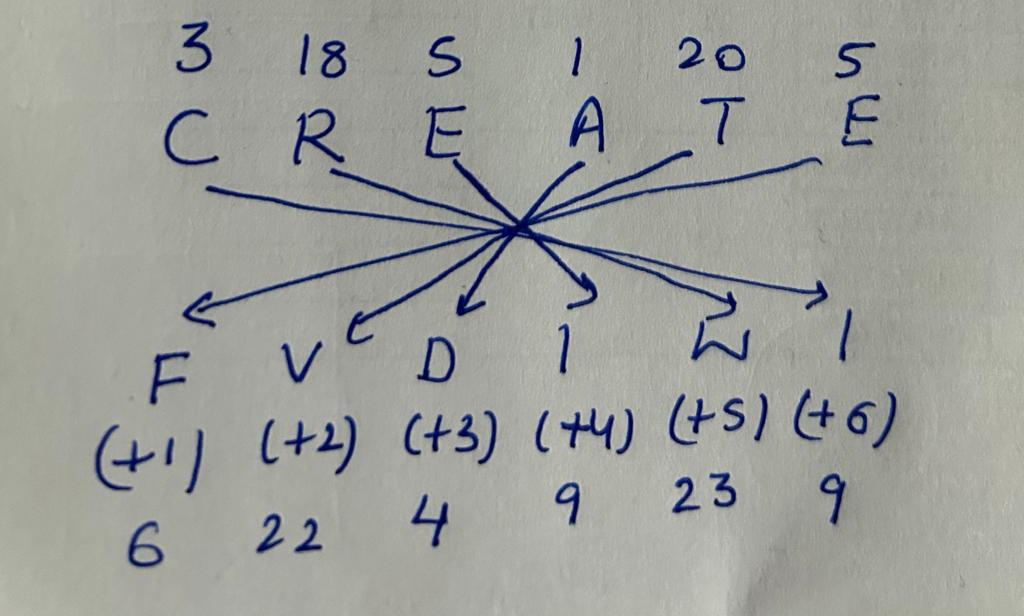 3 18 5 1 20 5
C R E A T E
F V D I W I
(+1) (+2) (+3) (+4) (+5) (+6)
6 22 4 9 23 9